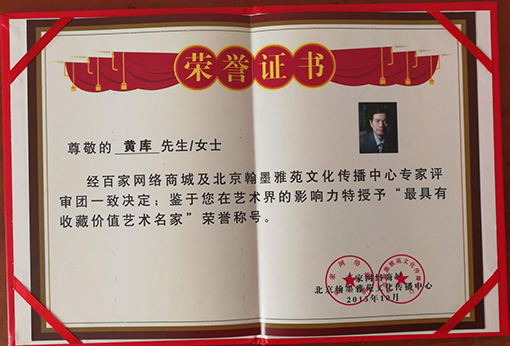 荣誉证书
尊敬的 黄库 先生/女士
经百家网络商城及北京翰墨雅苑文化传播中心专家评
审团一致决定；鉴于您在艺术界的影响力特授予“最具有
收藏价值艺术名家”荣誉称号。
家网络商
北京翰墨雅苑文化传播中心
2015年10月